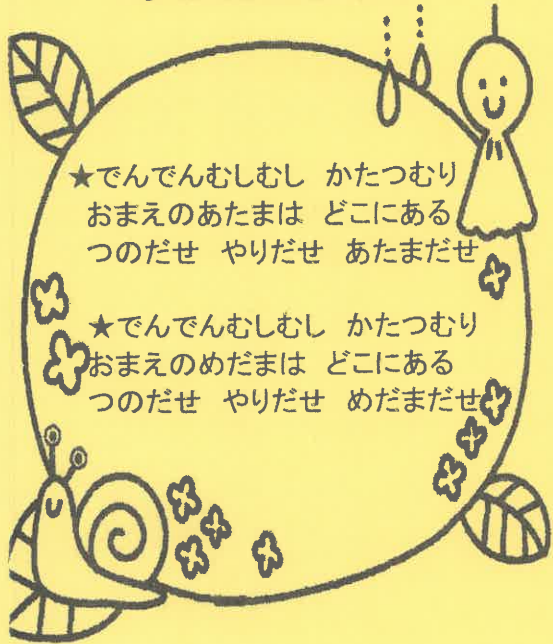 ★でんでんむしむし かたつむり
おまえのあたまは どこにある
つのだせ やりだせ あたまだせ
★でんでんむしむし かたつむり
おまえのめだまは どこにある
つのだせ やりだせ めだまだせ